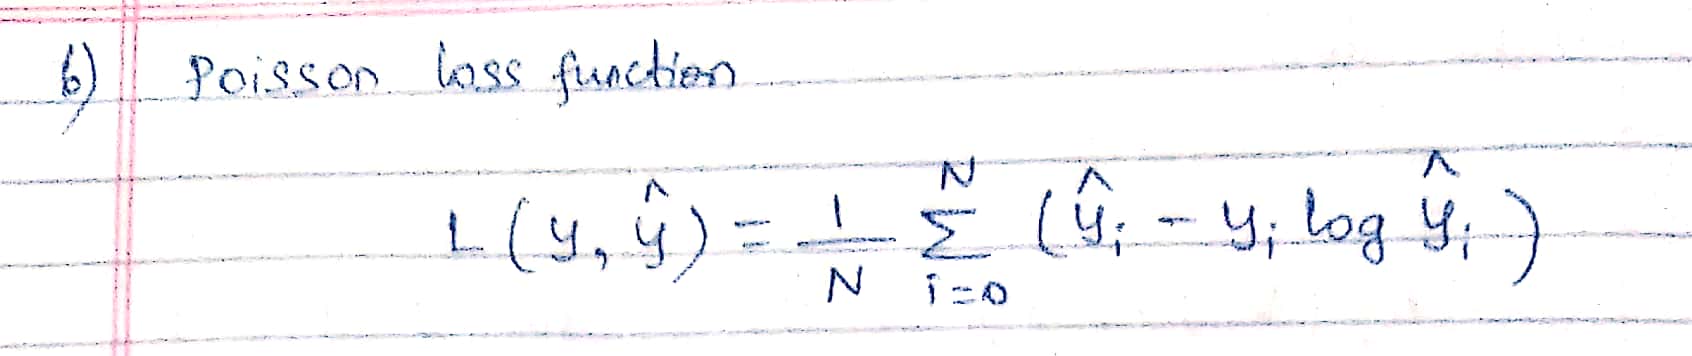 6) Poisson loss function
L(y, ŷ) = 1/N Σ_{i=0}^{N} (ŷᵢ - yᵢ log ŷᵢ)